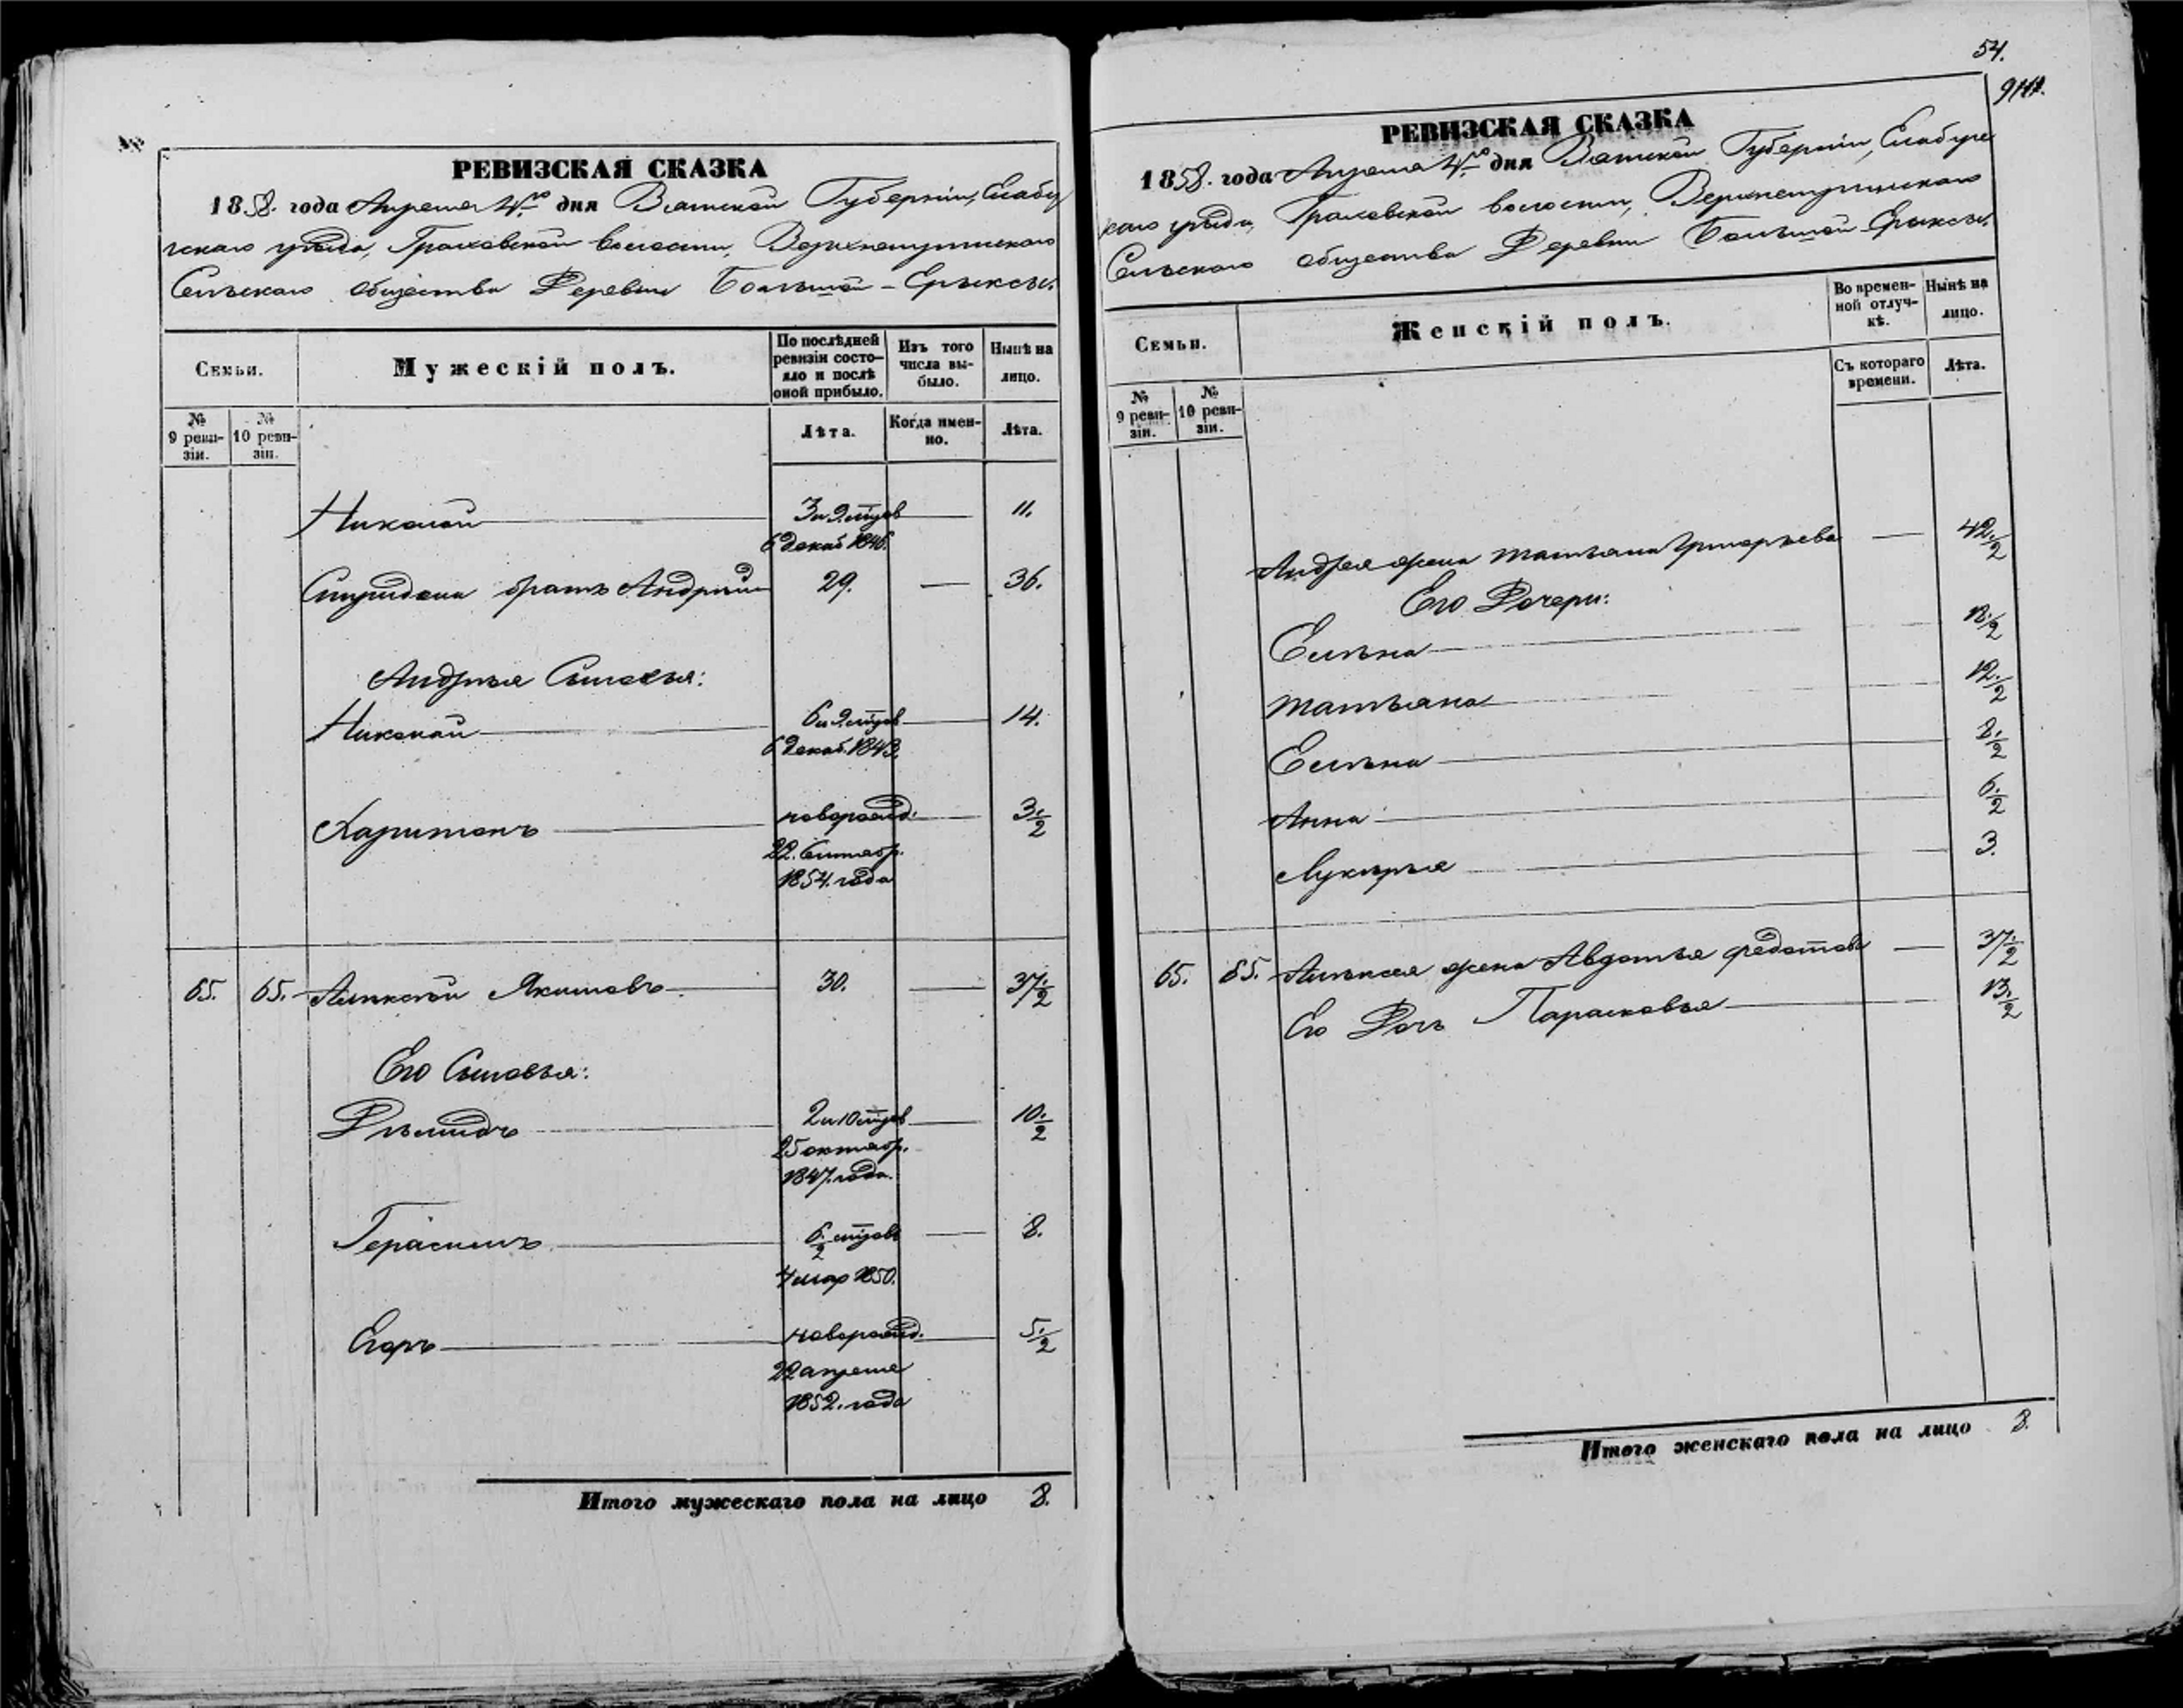 РЕВИЗСКАЯ СКАЗКА
1858. года Апреля 4го дня Вятской Губерніи, Елабу
гскаго уѣзда, Граховской волости,
Сельскаго общества Деревни Большой-Ерыксы.
Семьи.
Мужескій полъ.
По послѣдней ревизіи состояло и послѣ оной прибыло.
Изъ того числа выбыло.
Нынѣ на лицо.
№ 9 ревизіи.
№ 10 ревизіи.
Лѣта.
Когда именно.
Лѣта.
Николай 3 и 9 мцов 11.
6 декаб 1846.
Спиридона братъ Андрей 29. — 36.
Андрея Сыновья:
Николай 6 и 9 мцов 14.
6 декаб. 1843.
Харитонъ новорожд. 3 1/2
22. Сентябр.
1854. года
65. 65. Алексѣй Якимовъ 30. — 37 1/2
Его Сыновья:
2 и 10 мцов 10 1/2
25 октябр.
1847. года.
Герасимъ 6/2 мцовъ — 8.
4 мар 1850.
Егоръ новорожд. 5 1/2
22 апреля
1852. года
Итого мужескаго пола на лицо 8.
54.
РЕВИЗСКАЯ СКАЗКА
1858. года Апреля 4го дня Вятской Губерніи, Елабугс
каго уѣзда, Граховской волости,
Сельскаго общества Деревни Большой-Ерыксы.
Семьи.
Женскій полъ.
Во временной отлучкѣ.
Нынѣ на лицо.
№ 9 ревизіи.
№ 10 ревизіи.
Съ котораго времени.
Лѣта.
Андрея жена Татьяна Григорьева — 42 1/2
Его Дочери:
Елѣна
Татьяна 12 1/2
Елѣна 8 1/2
Анна 6 1/2
Лукерья 3.
65. 65. Алексея жена Авдотья Федотова — 37 1/2
Его Дочь Парасковья 13 1/2
Итого женскаго пола на лицо 8.